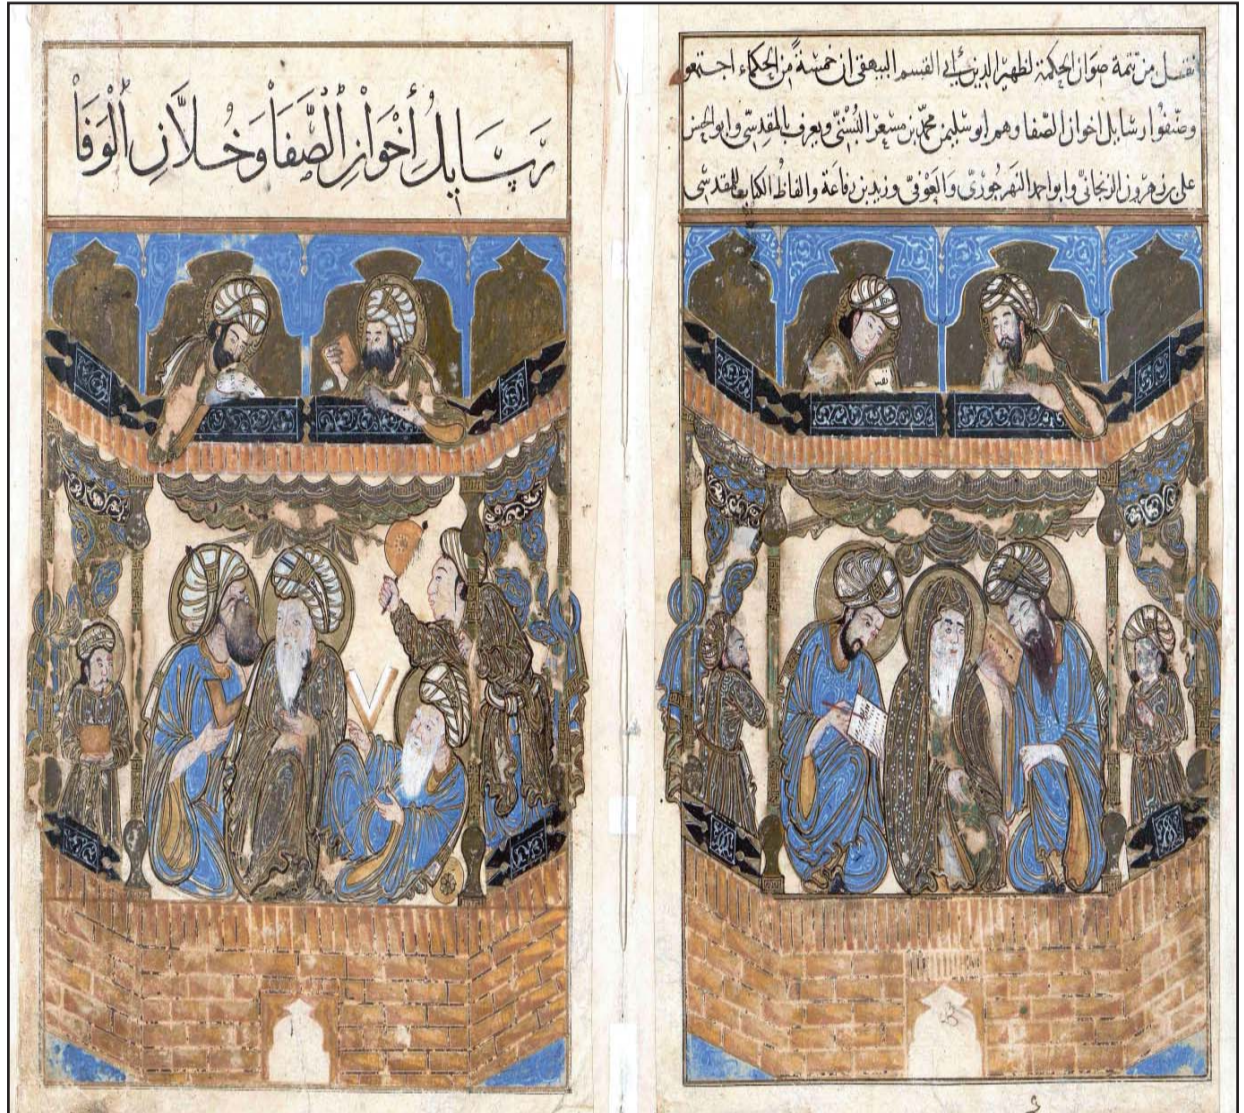 من تتمة صوان الحكمة لظهير الدين أبي القسم البيهقي ان خمسة من الحكماء اجتمعو
وصنفوا رسايل اخوان الصفا وهم ابو سليمن محمد بن مسعر البستي ويعرف بالمقدسي وابو الحسن
علي بن هرون الزنجاني وابو احمد النهرجوري والعوفي وزيد بن رفاعة والفاظ الكتاب للمقدسي
رسايل أخوان الصفا وخلان الوفا